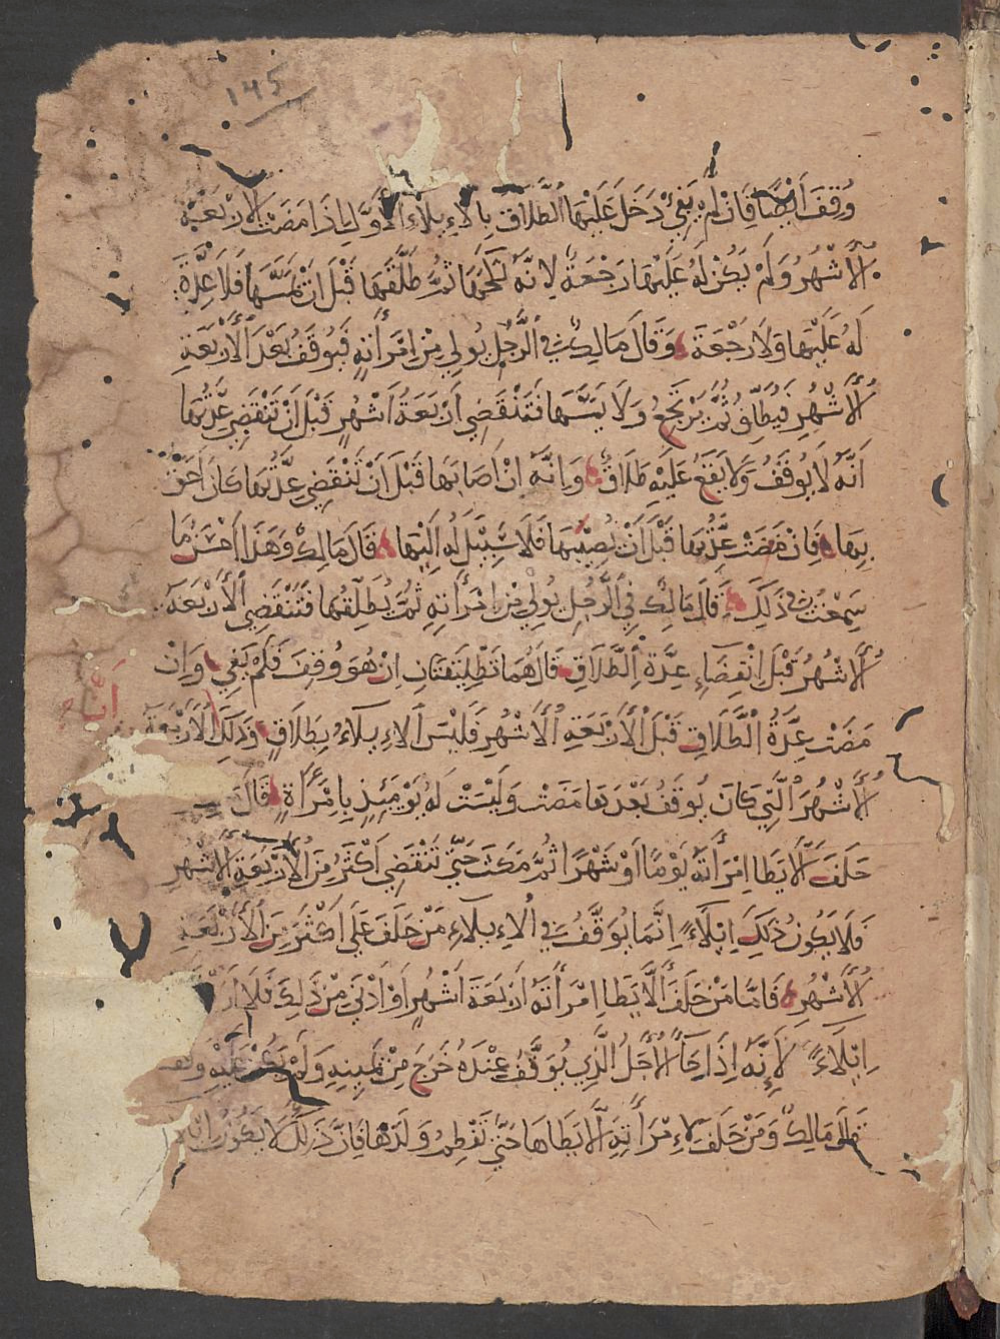 ١٤٥
وُقِفَ اَيْضًا فَاِنْ لَمْ يَفِئْ دَخَلَ عَلَيْهَا الطَّلَاقُ بِالاِيلَاءِ الْأَوَّلِ اِذَا مَضَتِ الاَرْبَعَةُ
الْأَشْهُرِ وَلَمْ يَكُنْ لَهُ عَلَيْهَا رَجْعَةٌ لِاَنَّهُ نَكَحَهَا ثُمَّ طَلَّقَهَا قَبْلَ اَنْ يَمَسَّهَا فَلَا عِدَّةَ
لَهُ عَلَيْهَا وَلَا رَجْعَةَ وَقَالَ مَالِكٌ فِي الرَّجُلِ يُولِي مِنِ امْرَأَتِهِ فَيُوقَفُ بَعْدَ الْأَرْبَعَةِ
الْأَشْهُرِ فَيُطَلِّقُ ثُمَّ يَرْتَجِعُ وَلَا يَمَسَّهَا فَتَنْقَضِي اَرْبَعَةُ اَشْهُرٍ قَبْلَ اَنْ تَنْقَضِيَ عِدَّتُهَا
اَنَّهُ لَا يُوقَفُ وَلَا يَقَعُ عَلَيْهِ طَلَاقٌ وَاِنَّهُ اِنْ اَصَابَهَا قَبْلَ اَنْ تَنْقَضِيَ عِدَّتُهَا كَانَ اَحَقَّ
بِهَا فَاِنْ مَضَتْ عِدَّتُهَا قَبْلَ اَنْ يُصِيبَهَا فَلَا سَبِيلَ لَهُ اِلَيْهَا قَالَ مَالِكٌ وَهَذَا اَحْسَنُ مَا
سَمِعْتُ فِي ذَلِكَ قَالَ مَالِكٌ فِي الرَّجُلِ يُولِي مِنِ امْرَأَتِهِ ثُمَّ يُطَلِّقُهَا فَتَنْقَضِي الْأَرْبَعَةُ
الْأَشْهُرُ قَبْلَ انْقِضَاءِ عِدَّةِ الطَّلَاقِ قَالَ هُمَا تَطْلِيقَتَانِ اِنْ هُوَ وُقِفَ فَلَمْ يَفِئْ وَاِنْ
مَضَتْ عِدَّةُ الطَّلَاقِ قَبْلَ الْأَرْبَعَةِ الْأَشْهُرِ فَلَيْسَ الاِيلَاءُ بِطَلَاقٍ وَذَلِكَ اَنَّ الْأَرْبَعَةَ
الْأَشْهُرَ الَّتِي كَانَ يُوقَفُ بَعْدَهَا مَضَتْ وَلَيْسَتْ لَهُ يَوْمَئِذٍ بِامْرَأَةٍ قَالَ
حَلَفَ اَلَّا يَطَا امْرَأَتَهُ يَوْمًا اَوْ شَهْرًا ثُمَّ مَكَثَ حَتَّى تَنْقَضِيَ اَكْثَرُ مِنَ الْأَرْبَعَةِ الْأَشْهُرِ
فَلَا يَكُونُ ذَلِكَ اِيلَاءً اِنَّمَا يُوَقَّفُ فِي الْاِيلَاءِ مَنْ حَلَفَ عَلَى اَكْثَرَ مِنَ الْأَرْبَعَةِ
الْأَشْهُرِ فَامَّا مَنْ حَلَفَ اَلَّا يَطَا امْرَأَتَهُ اَرْبَعَةَ اَشْهُرٍ اَوْ اَدْنَى مِنْ ذَلِكَ فَلَا اَرَى
اِيلَاءً لِأَنَّهُ اِذَا جَاءَ الْأَجَلُ الَّذِي يُوَقَّفُ عِنْدَهُ خَرَجَ مِنْ يَمِينِهِ وَلَمْ يَكُنْ عَلَيْهِ وَقْفٌ
قَالَ مَالِكٌ وَمَنْ حَلَفَ لِامْرَأَتِهِ اَلَّا يَطَاهَا حَتَّى تَفْطِمَ وَلَدَهَا فَاِنَّ ذَلِكَ لَا يَكُونُ اِيلَا